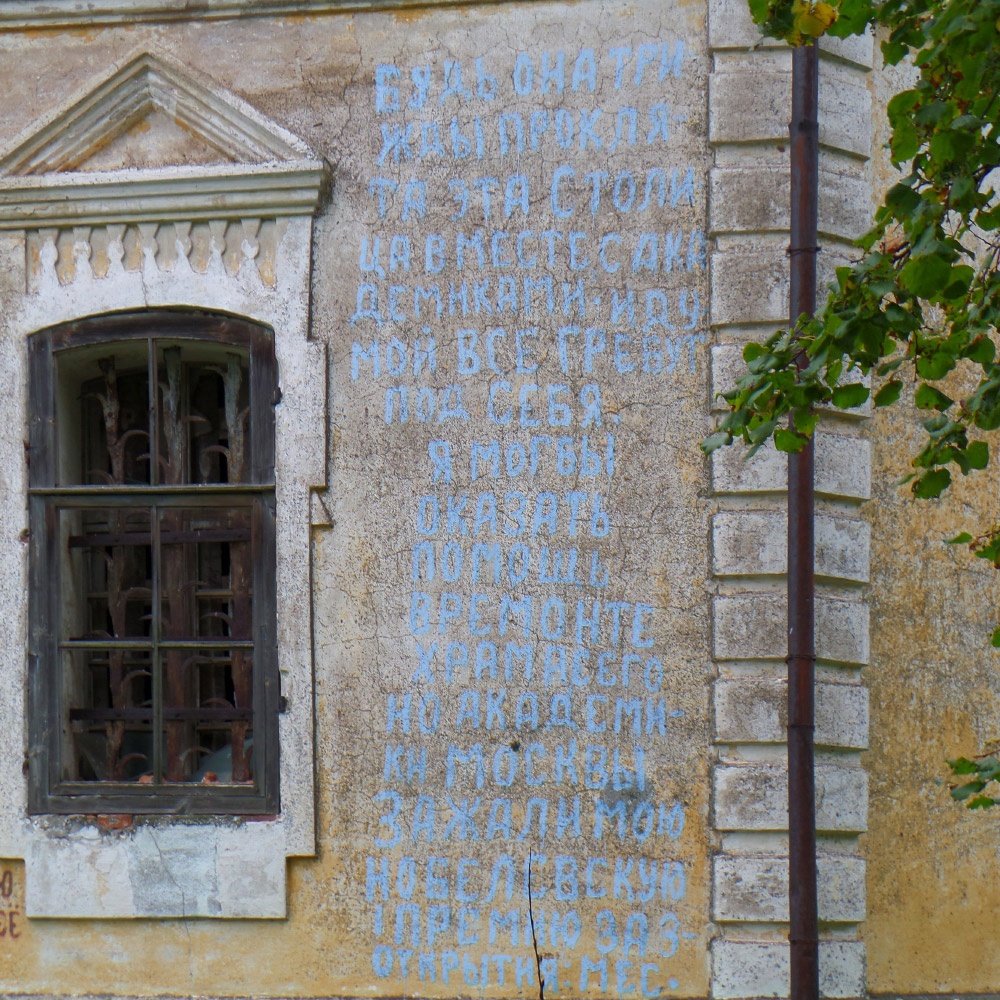 БУДЬ ОНА ТРИ-
ЖДЫ ПРОКЛЯ-
ТА ЭТА СТОЛИ
ЦА ВМЕСТЕ С АКА
ДЕМИКАМИ. ИДУ
МОЙ ВСЕ ГРЕБУТ
ПОД СЕБЯ.
Я МОГ БЫ
ОКАЗАТЬ
ПОМОЩЬ
В РЕМОНТЕ
ХРАМА СЕГО
НО АКАДЕМИ-
КИ МОСКВЫ
ЗАЖАЛИ МОЮ
НОБЕЛЕВСКУЮ
ПРЕМИЮ ЗА 3-
ОТКРЫТИЯ: МЕС.